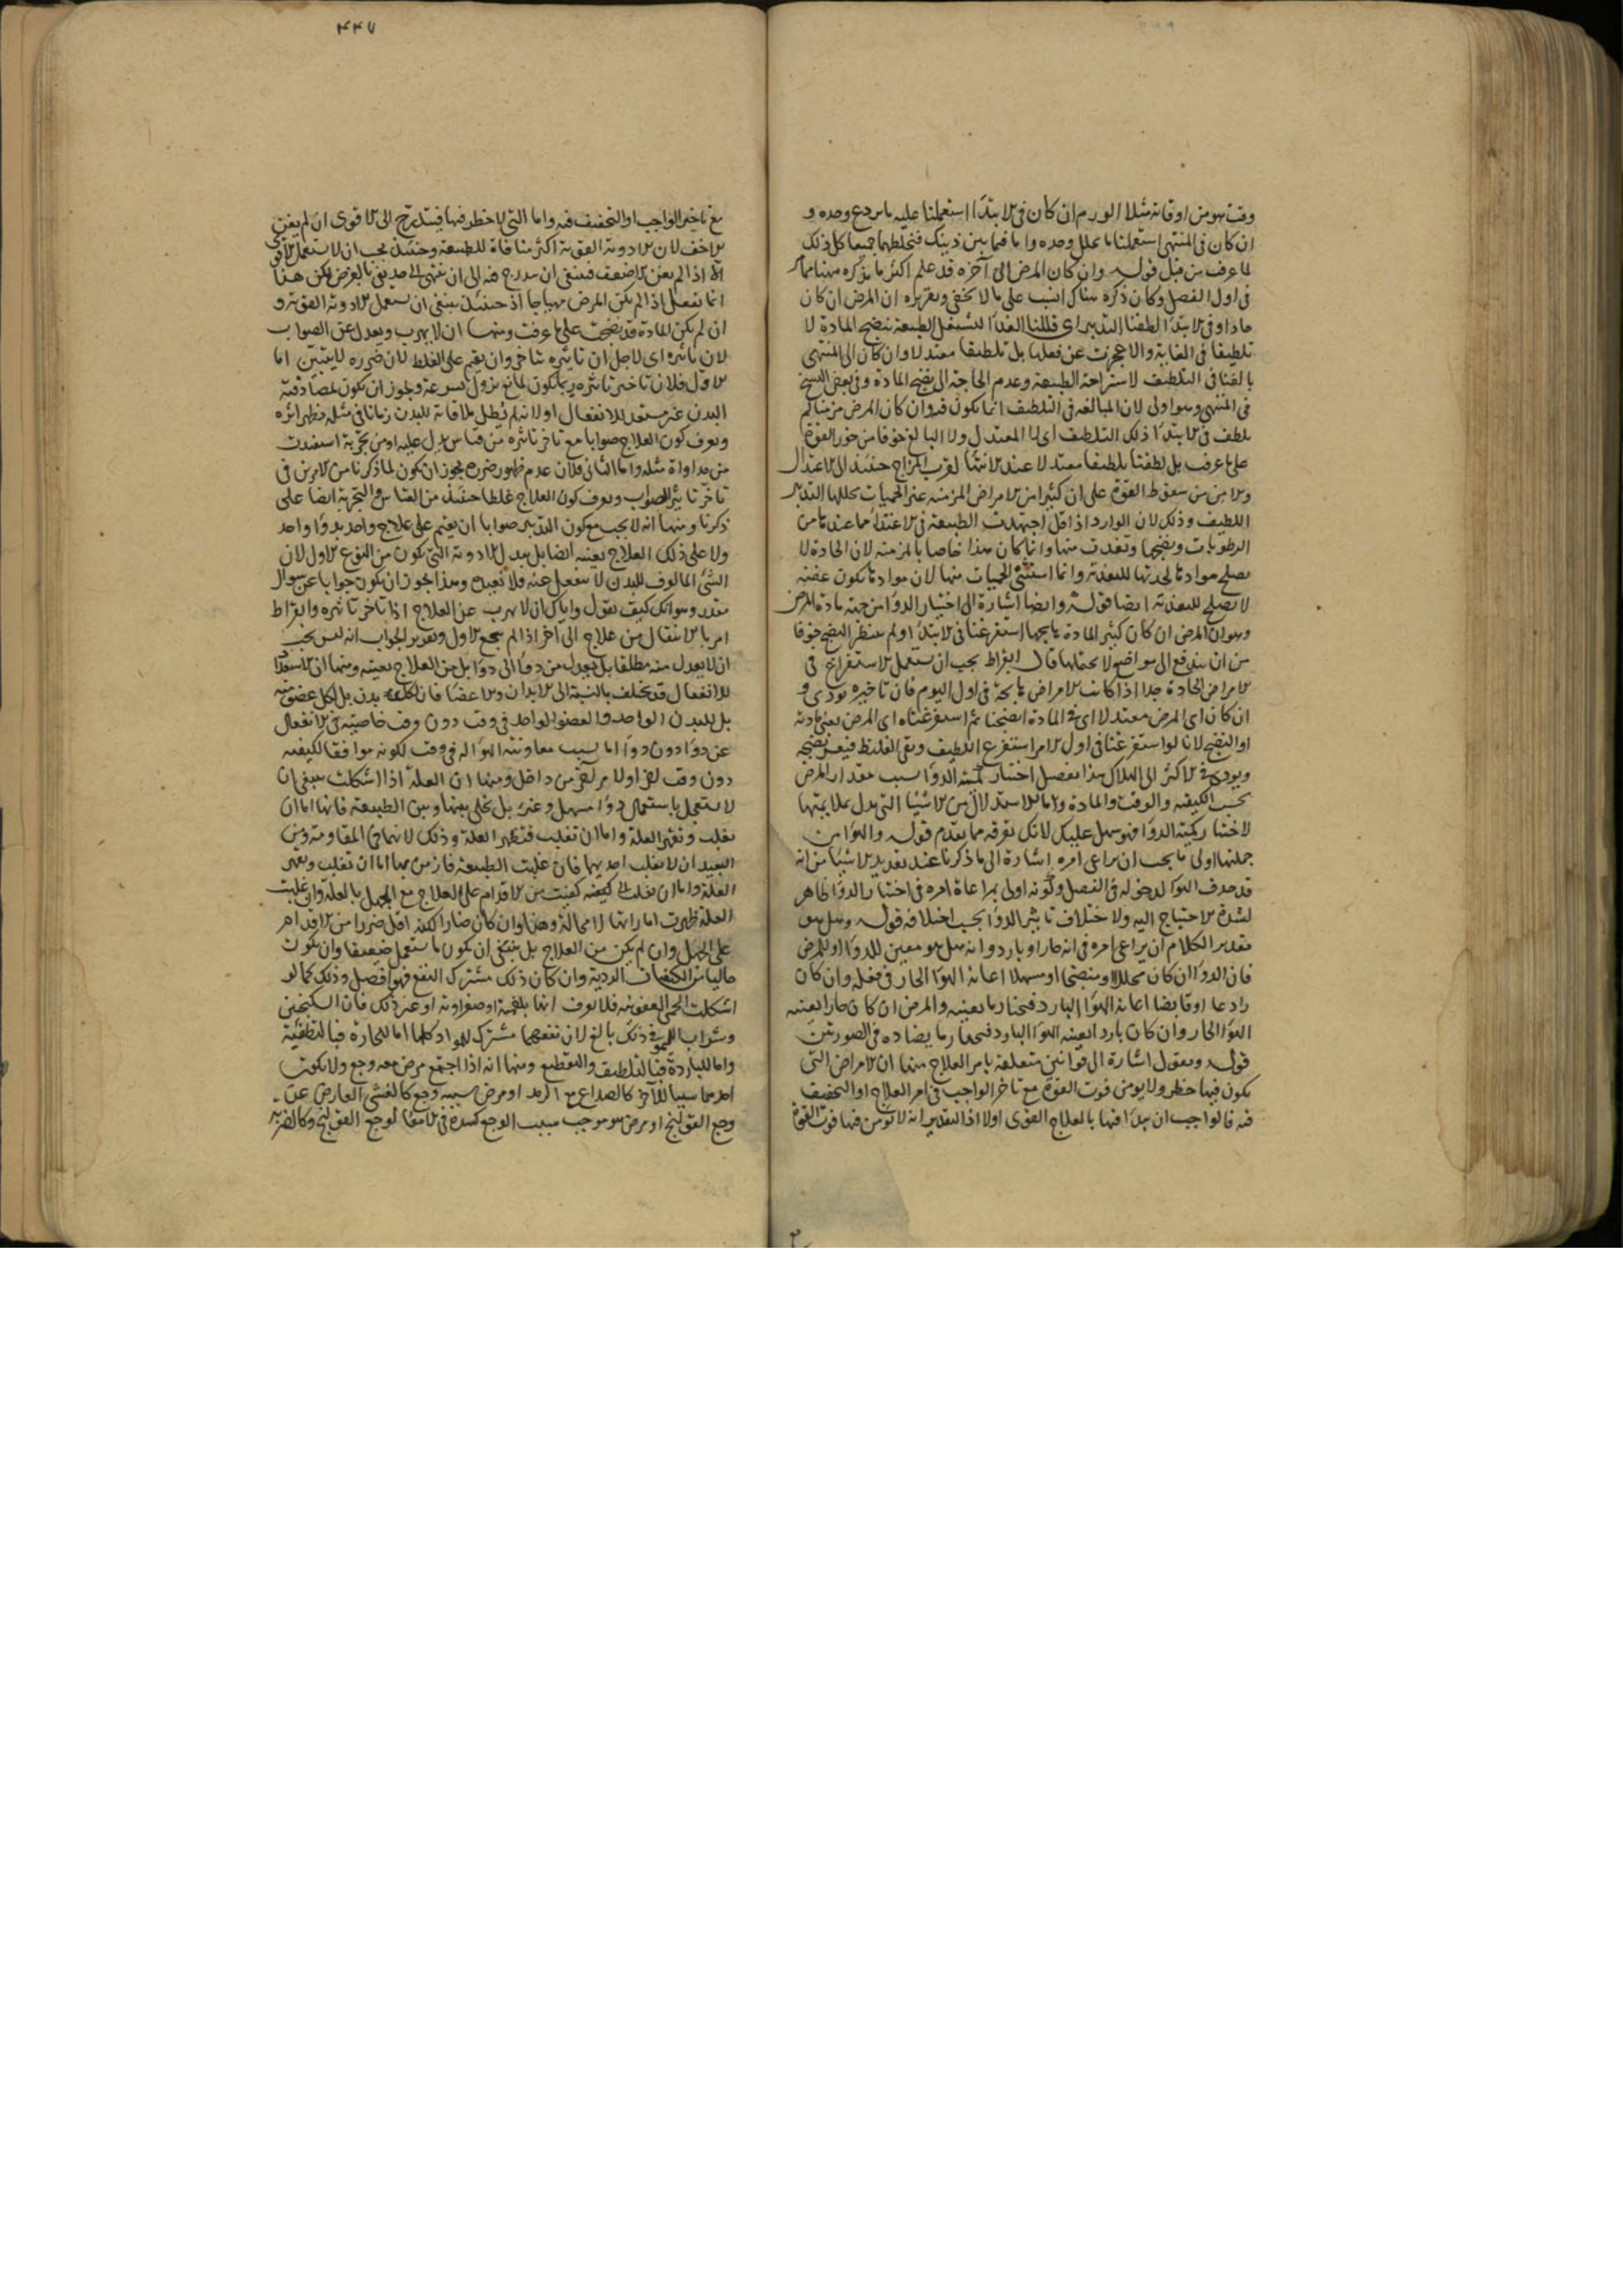 وقت هو من اوقاته مثلا الورم ان كان فى الابتدا استعملنا عليه ما يردع وحده و
ان كان فى المنتهى استعملنا ما يحلل وحده واما فيما بين ذينك فنخلطهما جميعا كل ذلك
لما عرف من قبل قوله وان كان المرض الى آخره قد علم اكثر ما يذكره ههنا مما
فى اول الفصل وكان ذكره هناك انسب على ما لا يخفى وتقريره ان المرض ان كان
حادا وفى الابتدا لطفنا التدبير اى قللنا الغذا لتشتغل الطبيعة بنضج المادة لا
تلطيفا فى الغاية والا عجزت عن فعلها بل تلطيفا معتدلا وان كان الى المنتهى
بالغنا فى التلطيف لاستراحة الطبيعة وعدم الحاجة الى نضج المادة وفى بعض النسخ
فى المنتهى وهو اولى لان المبالغة فى التلطيف انما يكون فيه وان كان المرض مزمنا لم
نلطف فى الابتدا ذلك التلطيف اى لا المعتدل ولا البالغ خوفا من خور القوة
على ما عرف بل لطفنا تلطيفا معتدلا عند الانتها لقرب المزاج حينئذ الى الاعتدال
والامن من سقوط القوة على ان كثيرا من الامراض المزمنة غير الحميات يحللها التدبير
اللطيف وذلك لان الوارد اذا قل اجتهدت الطبيعة فى الاغتذا مما عندنا من
الرطوبات ونضجها وتغذت منها وانما كان هذا خاصا بالمزمنة لان الحادة لا
يصلح موادها لحدتها للتغذية وانما استثنى الحميات منها لان موادها تكون عفنة
لا تصلح للتغذية ايضا قوله وايضا اشارة الى اختيار الدوا من جهة مادة المرض
وهو ان المرض ان كان كثير المادة هايجها استفرغنا فى الابتدا ولم ننتظر النضج خوفا
من ان يندفع الى مواضع لا يحتملها قال ابقراط يجب ان يستعمل الاستفراغ فى
الامراض الحادة جدا اذا كانت الامراض هايجة فى اول اليوم فان تاخيره يودى و
ان كان اى المرض معتدلا اى فى المادة انضجنا ثم استفرغناه اى المرض يعنى مادته
او النضج لانا لو استفرغنا فى اول الامر استفرغ اللطيف وبقى الغليظ فيعسر نضجه
ويودى فى الاكثر الى الهلاك هذا تفصيل اختيار كمية الدوا بسبب مقدار المرض
بحسب الكيفية والوقت والمادة واما الاستدلال من الاشيا التى يدل بملايمتها
لاختيار كمية الدوا فهو سهل عليك لانك تعرفه مما تقدم قوله والهوا من
جملتها اولى ما يجب ان يراعى امره اشارة الى ما ذكرنا عند تعديد الاشيا من انه
قد حذف الهوا لدخوله فى الفصل وكونه اولى بمراعاة امره فى اختيار الدوا ظاهر
لشدة الاحتياج اليه ولاختلاف تاثير الدوا بحسب اختلافه قوله وهل هو
تقدير الكلام ان يراعى امره فى انه حار او بارد وانه هل هو معين للدوا او للمرض
فان الدوا ان كان محللا او منضجا او مسهلا اعانه الهوا الحار فى فعله وان كان
رادعا او قابضا اعانه الهوا البارد فنختار ما يعينه والمرض ان كان حارا يعينه
الهوا الحار وان كان باردا يعينه الهوا البارد فنختار ما يضاده فى الصورتين
قوله ونقول اشارة الى قوانين متعلقة بامر العلاج منها ان الامراض التى
يكون فيها خطر ولا يومن فوت القوة مع تاخر الواجب فى امر العلاج او التخفيف
فيه فالواجب ان يبدا فيها بالعلاج القوى اولا اذ التقدير انه لا يومن فيها فوت القوة
٤٤٧
مع تاخير الواجب او التخفيف فيه واما التى لا خطر فيها فيتدرج الى الاقوى ان لم يغن
الاخف لان الادوية القوية اكثر منافاة للطبيعة وحينئذ يجب ان لا تستعمل الاقوى
الا اذا لم يغن الاضعف فينبغى ان يتدرج منه الى ان ينتهى الى حد يفى بالغرض لكن هذا
انما نفعل اذا لم يكن المرض مهياجا اذ حينئذ ينبغى ان يستعمل الادوية القوية و
ان لم يكن المادة قد نضجت على ما عرفت ومنها ان لا يهرب ويعدل عن الصواب
لان تاثيره اى لاجل ان تاثيره يتاخر وان يقيم على الغلط لان ضرره لا يتبين اما
الاول فلان تاخير تاثيره ربما يكون لمانع يزول بسرعة ويجوز ان يكون لمصادفته
البدن غير مستعد للانفعال او لانه لم يطل ملاقاته للبدن زمانا فى مثله يظهر اثره
ويعرف كون العلاج صوابا مع تاخر تاثيره من قياس يدل عليه او من تجربة استفيدت
من مداواة مثله واما الثانى فلان عدم ظهور ضرره يجوز ان يكون لما ذكرنا من الامرين فى
تاخر تاثير الصواب ويعرف كون العلاج غلطا حينئذ من القياس والتجربة ايضا على
ذكرنا ومنها انه لا يجب مع كون التدبير صوابا ان يقيم على علاج واحد بدوا واحد
ولا على ذلك العلاج بعينه ايضا بل يبدل الادوية التى تكون من النوع الاول لان
الشئ المالوف للبدن لا ينفعل عنه فلا نفيد وهذا يجوز ان يكون جوابا عن سوال
مقدر وهو انك كيف تقول واياك ان لا يهرب عن العلاج اذا تاخر تاثيره وابقراط
امر بالانتقال من علاج الى آخر اذا لم ينجع الاول وتقرير الجواب انه ليس يجب
ان لا يعدل منه مطلقا بل يعدل من دوا الى دوا بل من العلاج بعينه ومنها ان الاستعداد
للانفعال قد يختلف بالنسبة الى الابدان والاعضا فان لكل بدن بل لكل عضو منه
بل للبدن الواحد والعضو الواحد فى وقت دون وقت خاصية فى الانفعال
عن دوا دون دوا اما بسبب معاونته الهوا له فى وقت لكونه موافقا لكيفيته
دون وقت آخر او لامر آخر من داخل ومنها ان العلة اذا اشكلت ينبغى ان
لا يستعجل باستعمال دوا مسهل وغيره بل يخلى بينها وبين الطبيعة فانها اما ان
تغلب وتقهر العلة واما ان تغلب فتظهر العلة وذلك لانهما فى المقاومة ومن
البعيد ان لا يغلب احديهما فان غلبت الطبيعة
العلة ظهرت اماراتها لا محالة وهذا وان كان ضارا لكنه اقل ضررا من الاقدام
على الجهل وان لم يكن من العلاج بل ينبغى ان يكون ما يستعمل ضعيفا وان يكون
خاليا من الكيفيات الردية وان كان ذلك مشترك النفع فهو افضل وذلك كما لو
اشكلت الحمى العفونية فلا يعرف انها بلغمية او صفراوية او غير ذلك فان السكنجبين
وشراب الليمو فى ذلك بالغ لان نفعهما مشترك للمواد كلها اما للحارة فبالتطفية
واما للباردة فبالتلطيف والتقطيع ومنها انه اذا اجتمع مرض معه وجع ولا يكون
احدهما سببا للآخر كالصداع مع الرمد او مرض سببه وجع كالغشى العارض عن
وجع القولنج او مرض هو موجب سبب الوجع كسدة فى الامعا لوجع القولنج وكالضربة